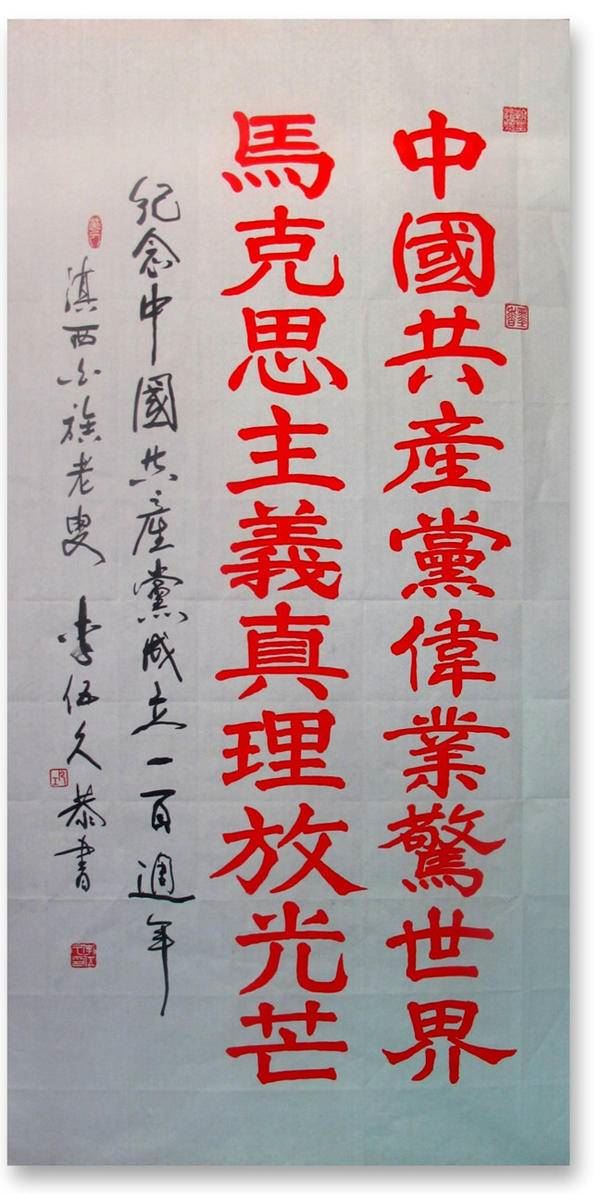 中國共產黨偉業驚世界
馬克思主義真理放光芒
紀念中國共產黨成立一百週年
滇西白族老叟 李伍久 恭書